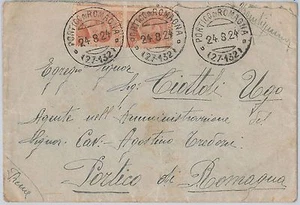 PORTICO DI ROMAGNA
24.8.24
(27-132)
PORTICO DI ROMAGNA
24.8.24
(27-132)
PORTICO DI ROMAGNA
24.8.24
(27-132)
Egregio Signor
Sig. Ciottoli Ugo
Agente nell'Amministrazione del
Signor Cav. Agostino Tredoni
Portico di Romagna